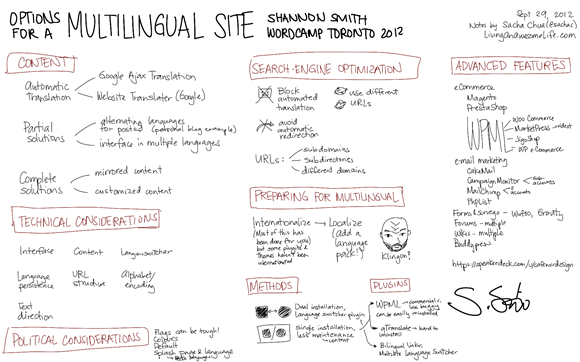 OPTIONS FOR A MULTILINGUAL SITE
SHANNON SMITH
WORDCAMP TORONTO 2012
Sept 29, 2012
Notes by Sacha Chua (@sachac)
LivingAnAwesomeLife.com
CONTENT
Automatic Translation
Google Ajax Translation
Website Translater (Google)
Partial solutions
alternating languages
for posts (potential blog example)
interface in multiple languages
Complete solutions
mirrored content
customized content
TECHNICAL CONSIDERATIONS
Interface
Content
Language switcher
Language persistence
URL structure
Alphabet/ encoding
Text direction
POLITICAL CONSIDERATIONS
Flags can be tough!
Colours
Default
Splash page & language
SEARCH-ENGINE OPTIMIZATION
Block automated translation
Use different URLs
avoid automatic redirection
URLs:
subdomains
subdirectories
different domains
PREPARING FOR MULTILINGUAL
Internationalize
(Most of this has
been done for you)
but some plugins &
themes haven't been
internationalized
Localize
(add a
language
pack!)
Klingon?
METHODS
Dual installation,
language switcher plugin
single installation,
less maintenance
content
PLUGINS
WPML
commercial,
can be easily uninstalled
qTranslate
hard to uninstall
Bilingual Linker,
Multisite Language Switcher
ADVANCED FEATURES
eCommerce
Magento
PrestaShop
WPML
Woo Commerce
MarketPress
JigoShop
WP e-Commerce
email marketing
CakeMail
Campaign Monitor
sub accounts
Mailchimp
accounts
PhpList
Forms & surveys - Wufoo, Gravity
Forums - multiple
Wikis - multiple
Buddypress
https://speakerdeck.com/cafenoirdesign